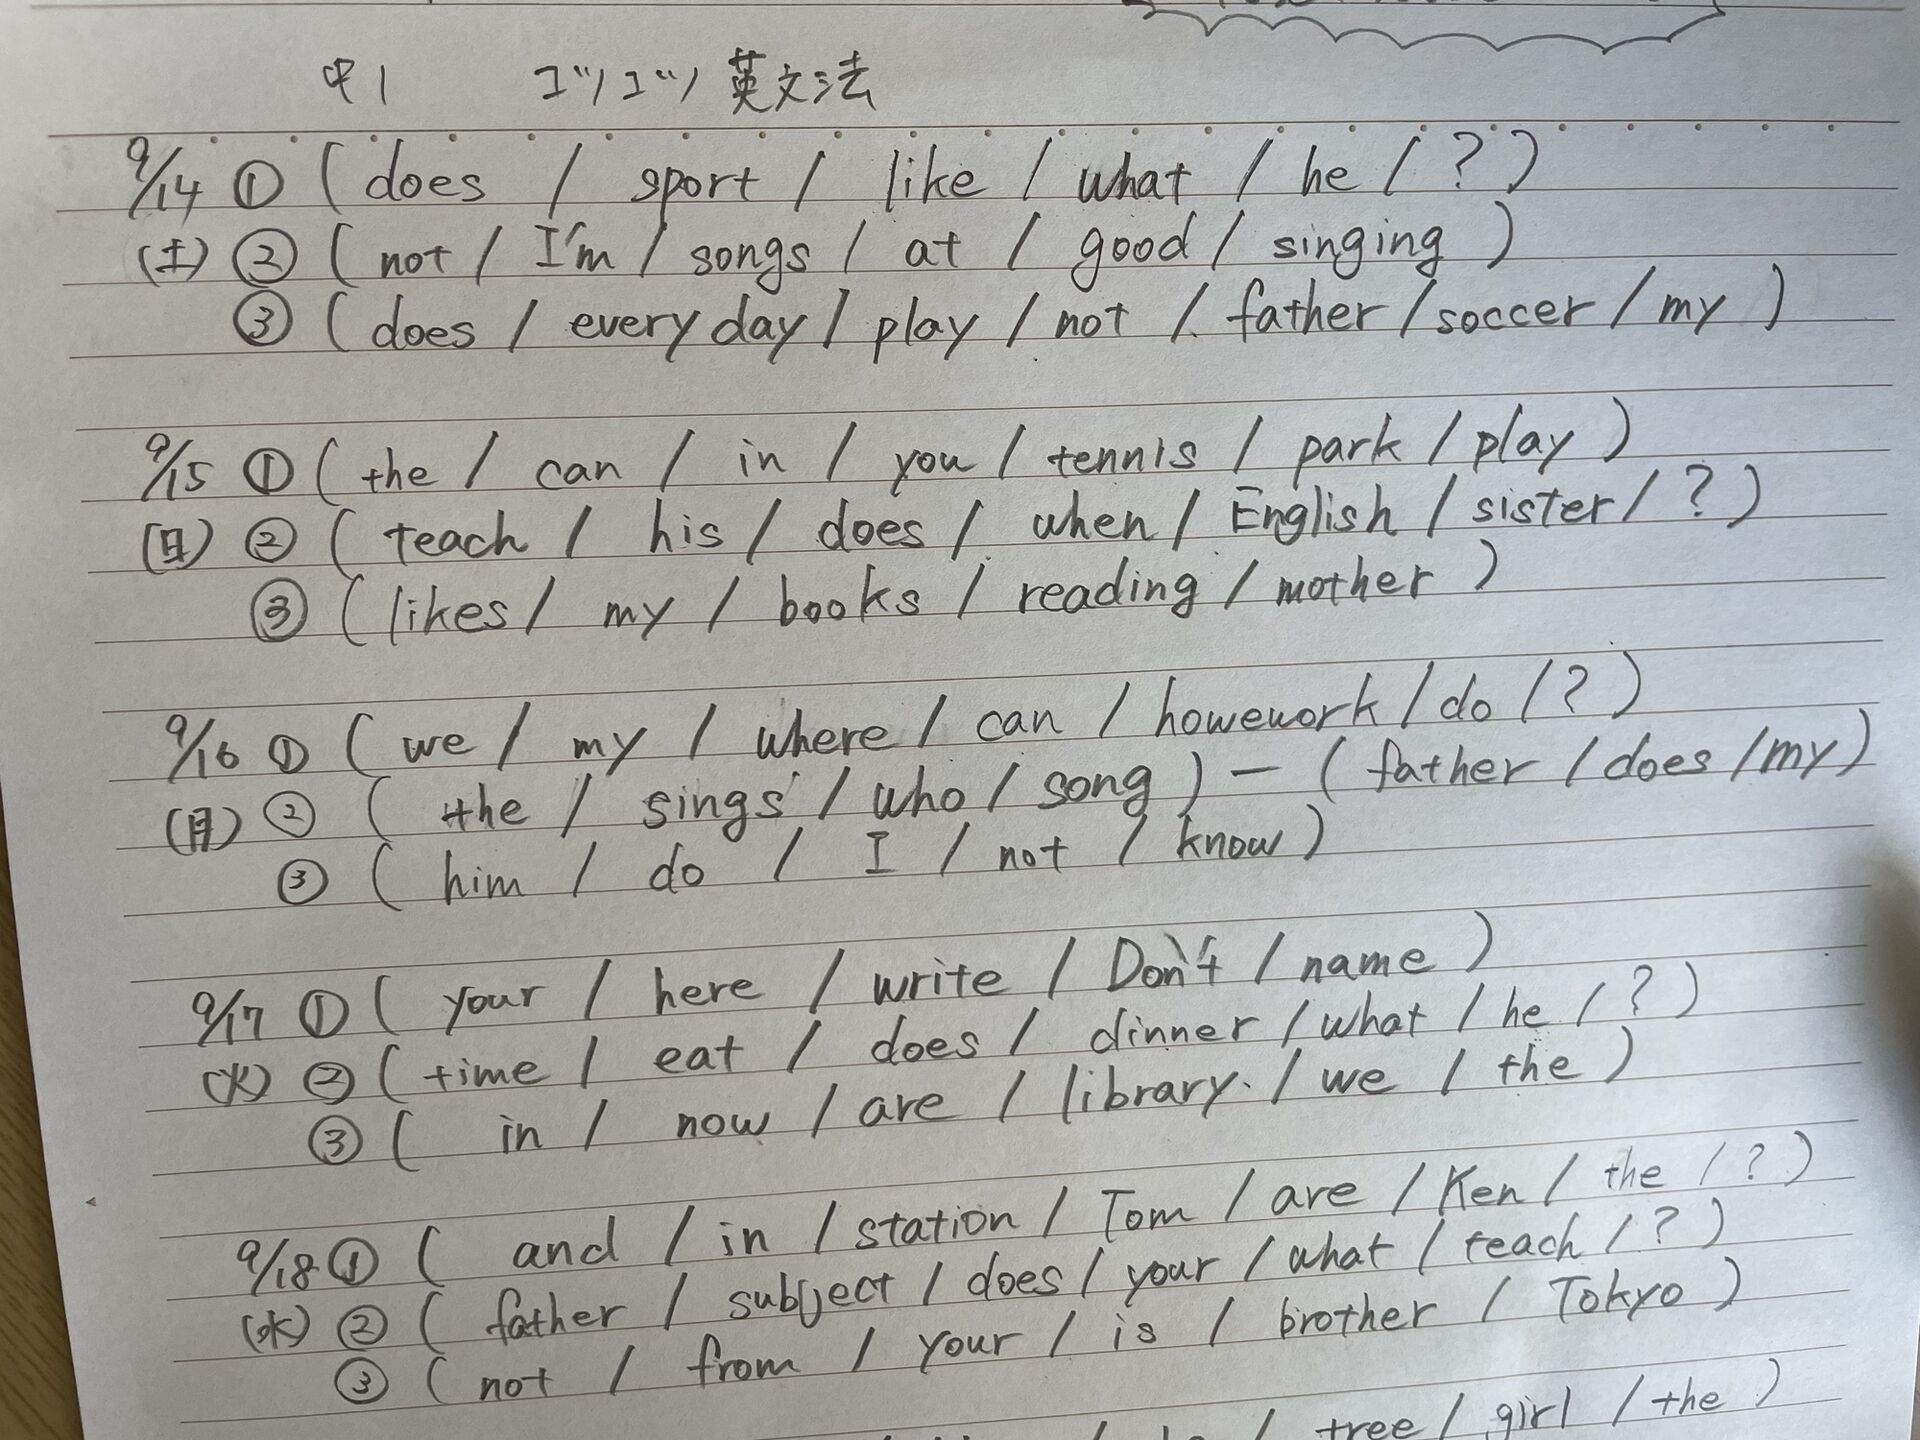 中1 コツコツ英文法
9/14 ① ( does / sport / like / what / he / ? )
(土) ② ( not / I'm / songs / at / good / singing )
③ ( does / every day / play / not / father / soccer / my )
9/15 ① ( the / can / in / you / tennis / park / play )
(日) ② ( teach / his / does / when / English / sister / ? )
③ ( likes / my / books / reading / mother )
9/16 ① ( we / my / where / can / howework / do / ? )
(月) ② ( the / sings / who / song ) - ( father / does / my )
③ ( him / do / I / not / know )
9/17 ① ( your / here / write / Don't / name )
(火) ② ( time / eat / does / dinner / what / he / ? )
③ ( in / now / are / library. / we / the )
9/18 ① ( and / in / station / Tom / are / Ken / the / ? )
(水) ② ( father / subject / does / your / what / teach / ? )
③ ( not / from / your / is / brother / Tokyo )
/ tree / girl / the )